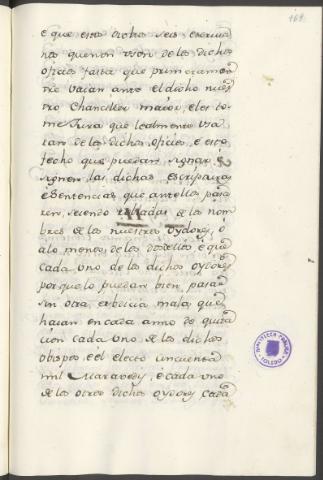 169
è que estos dichos seis escriva
nos que non usen de los dichos
oficios fasta que primeramen
tre vaian ante el dicho nues
tro Chanciller maior, e les to
me Jura que lealmente usa
ran de los dichos oficios, e esto
fecho que puedan signar, è
signen las dichas escripturas
e Sentencias, que ante ellos pasa
ren, seiendo libradas de los nom
bres de los nuestros oydores, o
alo menos de los dos dellos è que
cada uno de los dichos oydores
por que lo puedan bien, pasar
sin otra mala, que
haian en cada anno de quita
cion cada uno de los dichos
obispos, e el electo cincuenta
mil Maravedis, è cada uno
de los otros dichos oydores cada
BIBLIOTECA PUBLICA
TOLEDO